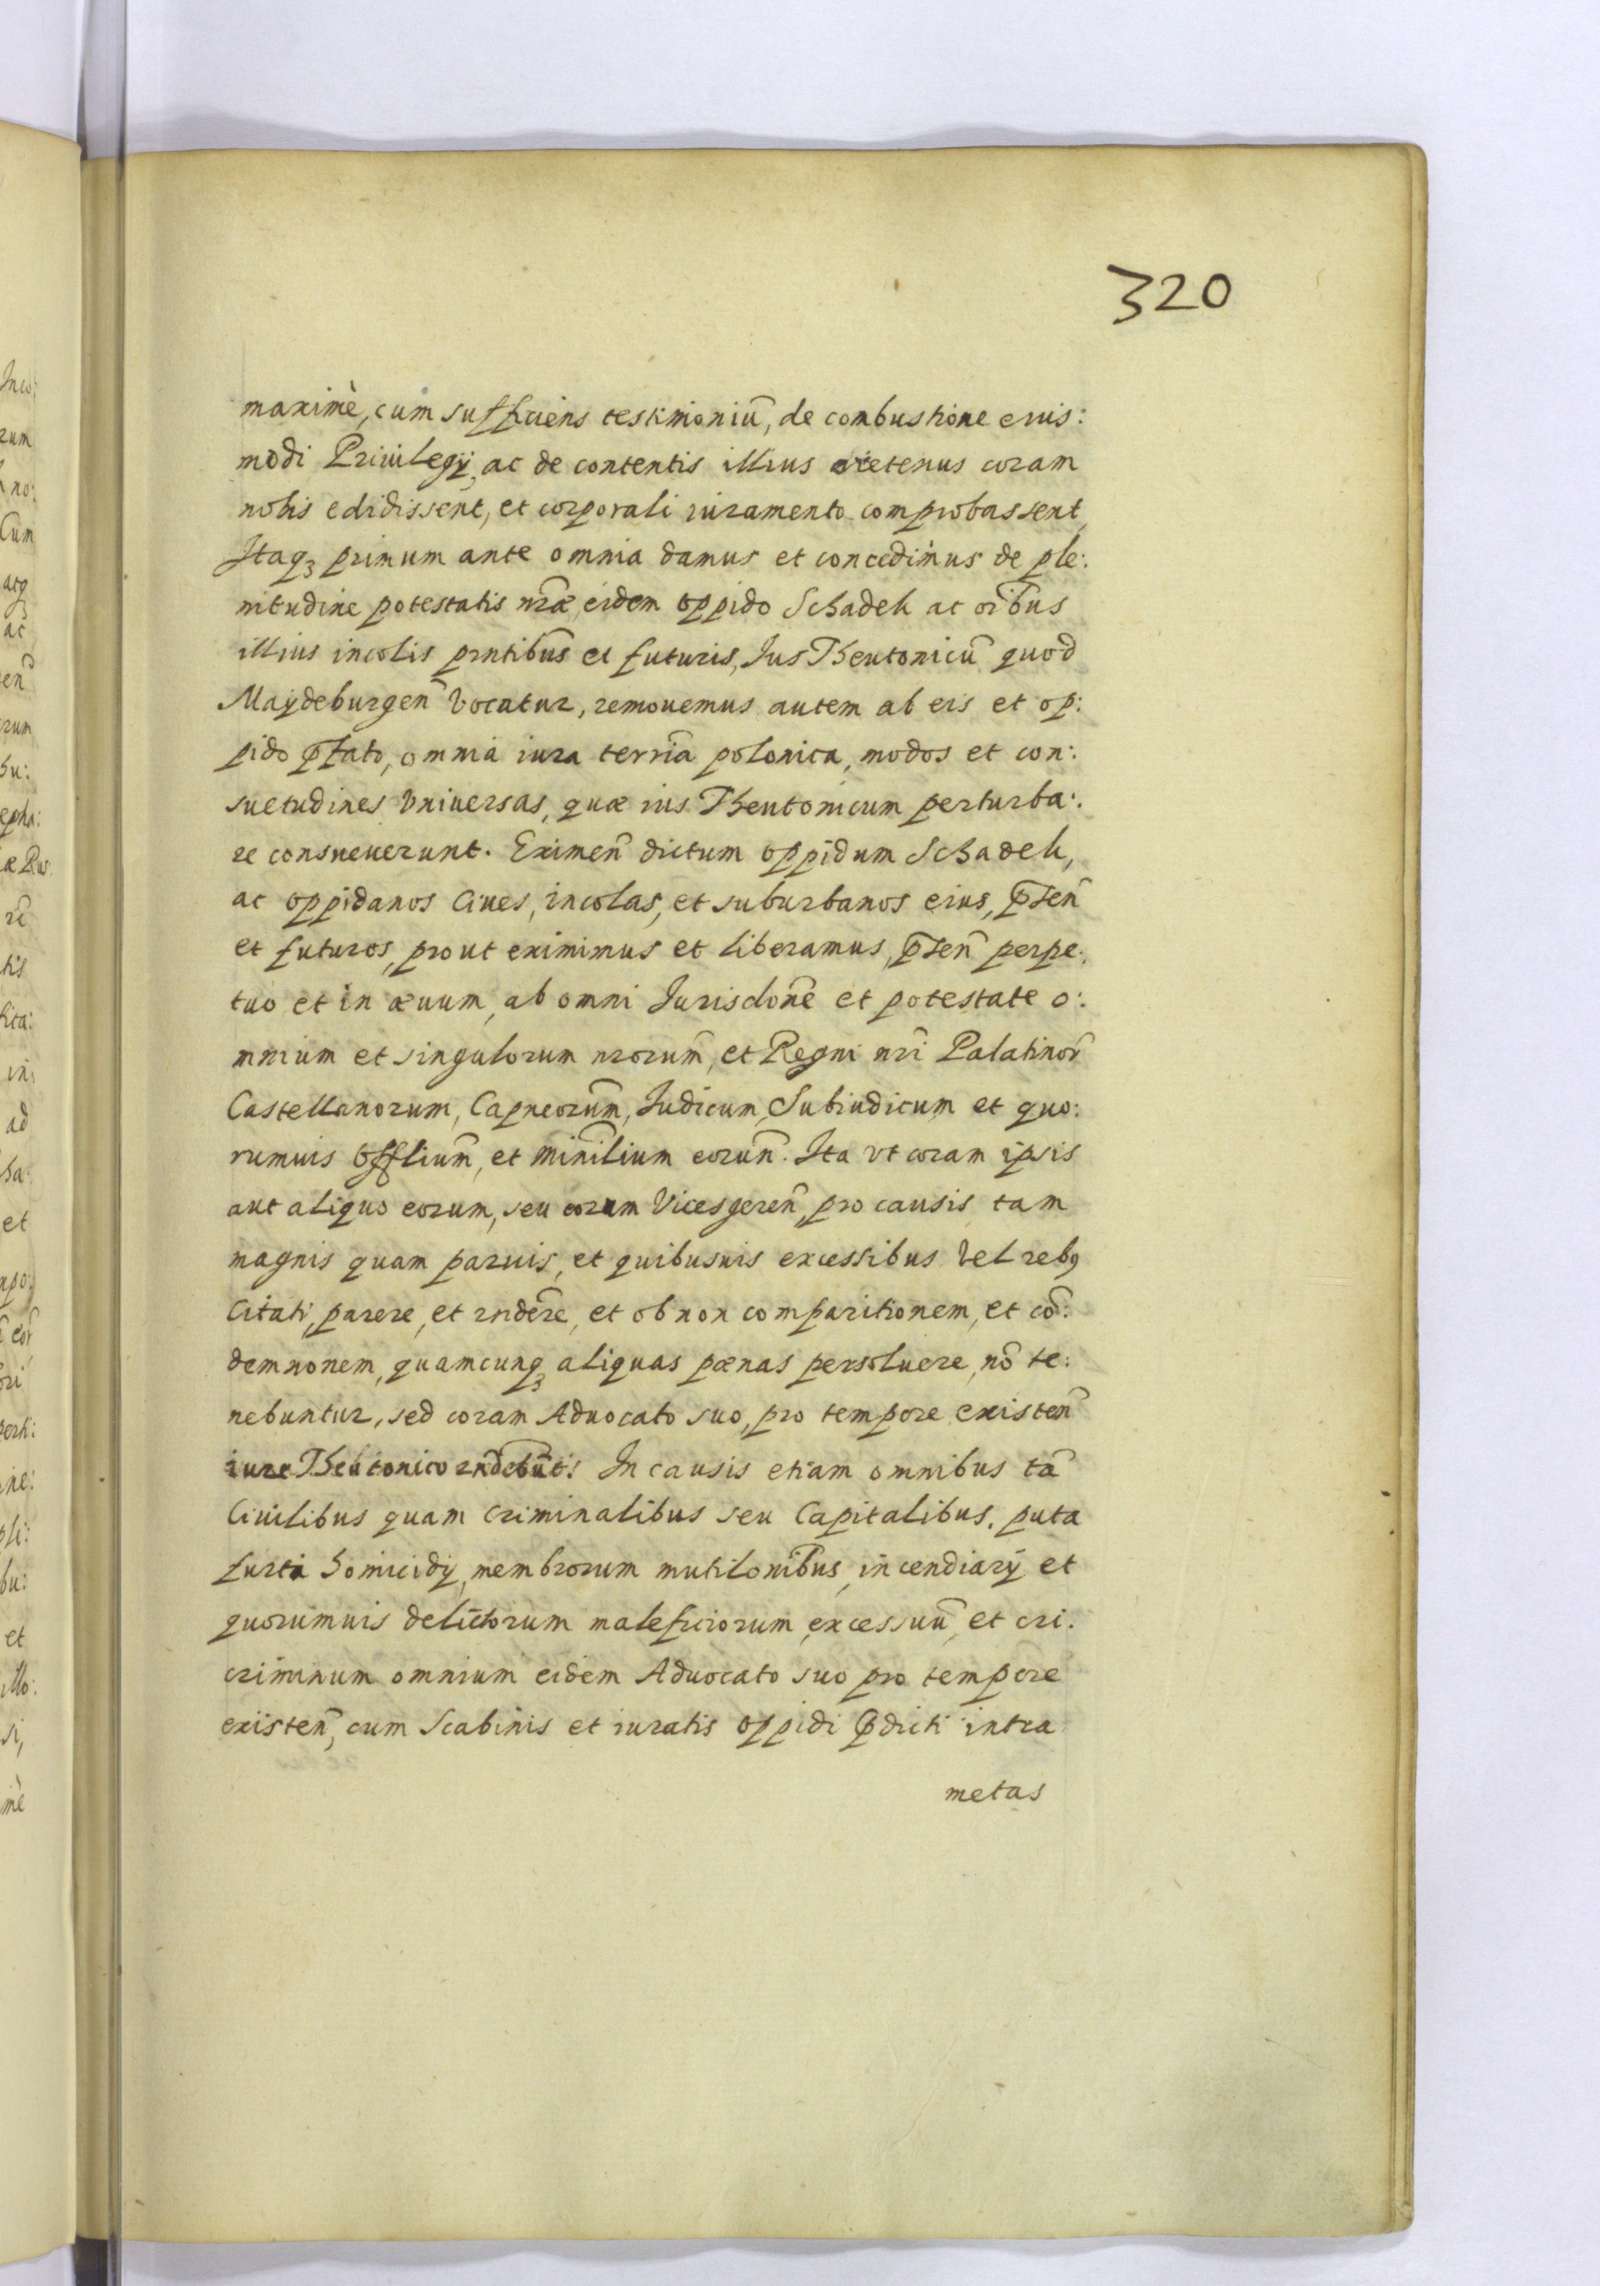 320
maximè, cum sufficiens testimoniū, de combustione eius:
modi Priuilegÿ, ac de contentis illius oretenus coram
nobis edidissent, et corporali iuramento comprobassent,
Itaqꝫ primum ante omnia damus et concedimus de ple:
nitudine potestatis nrãe eidem oppido Schadek ac oĩbus
illius incolis pñtibus et futuris, Jus Theutonicũ quod
Maydeburgeñ vocatur, remouemus autem ab eis et op:
pido p̄fato, omnia iura terrĩa polonica, modos et con:
suetudines vniuersas, quæ ius Theutonicum perturba:
re consueuerunt. Eximeñ dictum oppidum Schadek,
ac oppidanos Ciues, incolas, et suburbanos eius, p̄señ
et futuros, prout eximimus et liberamus, p̄señ perpe:
tuo et in æuum, ab omni Jurisdone̅ et potestate o:
mnium et singulorum nrorum̅, et Regni nrĩ Palatinor̃
Castellanorum, Capneorum̅, Judicum, Subiudicum et quo:
rumuis Offlium̅, et Minĩlium eorum̅. Ita vt coram ipsis
aut aliquo eorum, seu eorum Vicesgereñ, pro causis tam
magnis quam paruis, et quibusuis excessibus vel rebꝯ
Citati, parere, et rñdere, et ob non comparitionem, et cõ:
demnonem, quamcunqꝫ aliquas pœnas persoluere, nõ te:
nebuntur, sed coram Aduocato suo, pro tempore existeñ
iure Theutonico rñdebũt: In causis etiam omnibus tã
Ciuilibus quam criminalibus seu Capitalibus, puta
furti homicidÿ, membrorum mutilonĩbus, incendiarÿ et
quorumuis delictorum maleficiorum, excessuũ, et cri:
criminum omnium eidem Aduocato suo pro tempore
existeñ, cum Scabinis et iuratis oppidi p̄dicti intra
metas